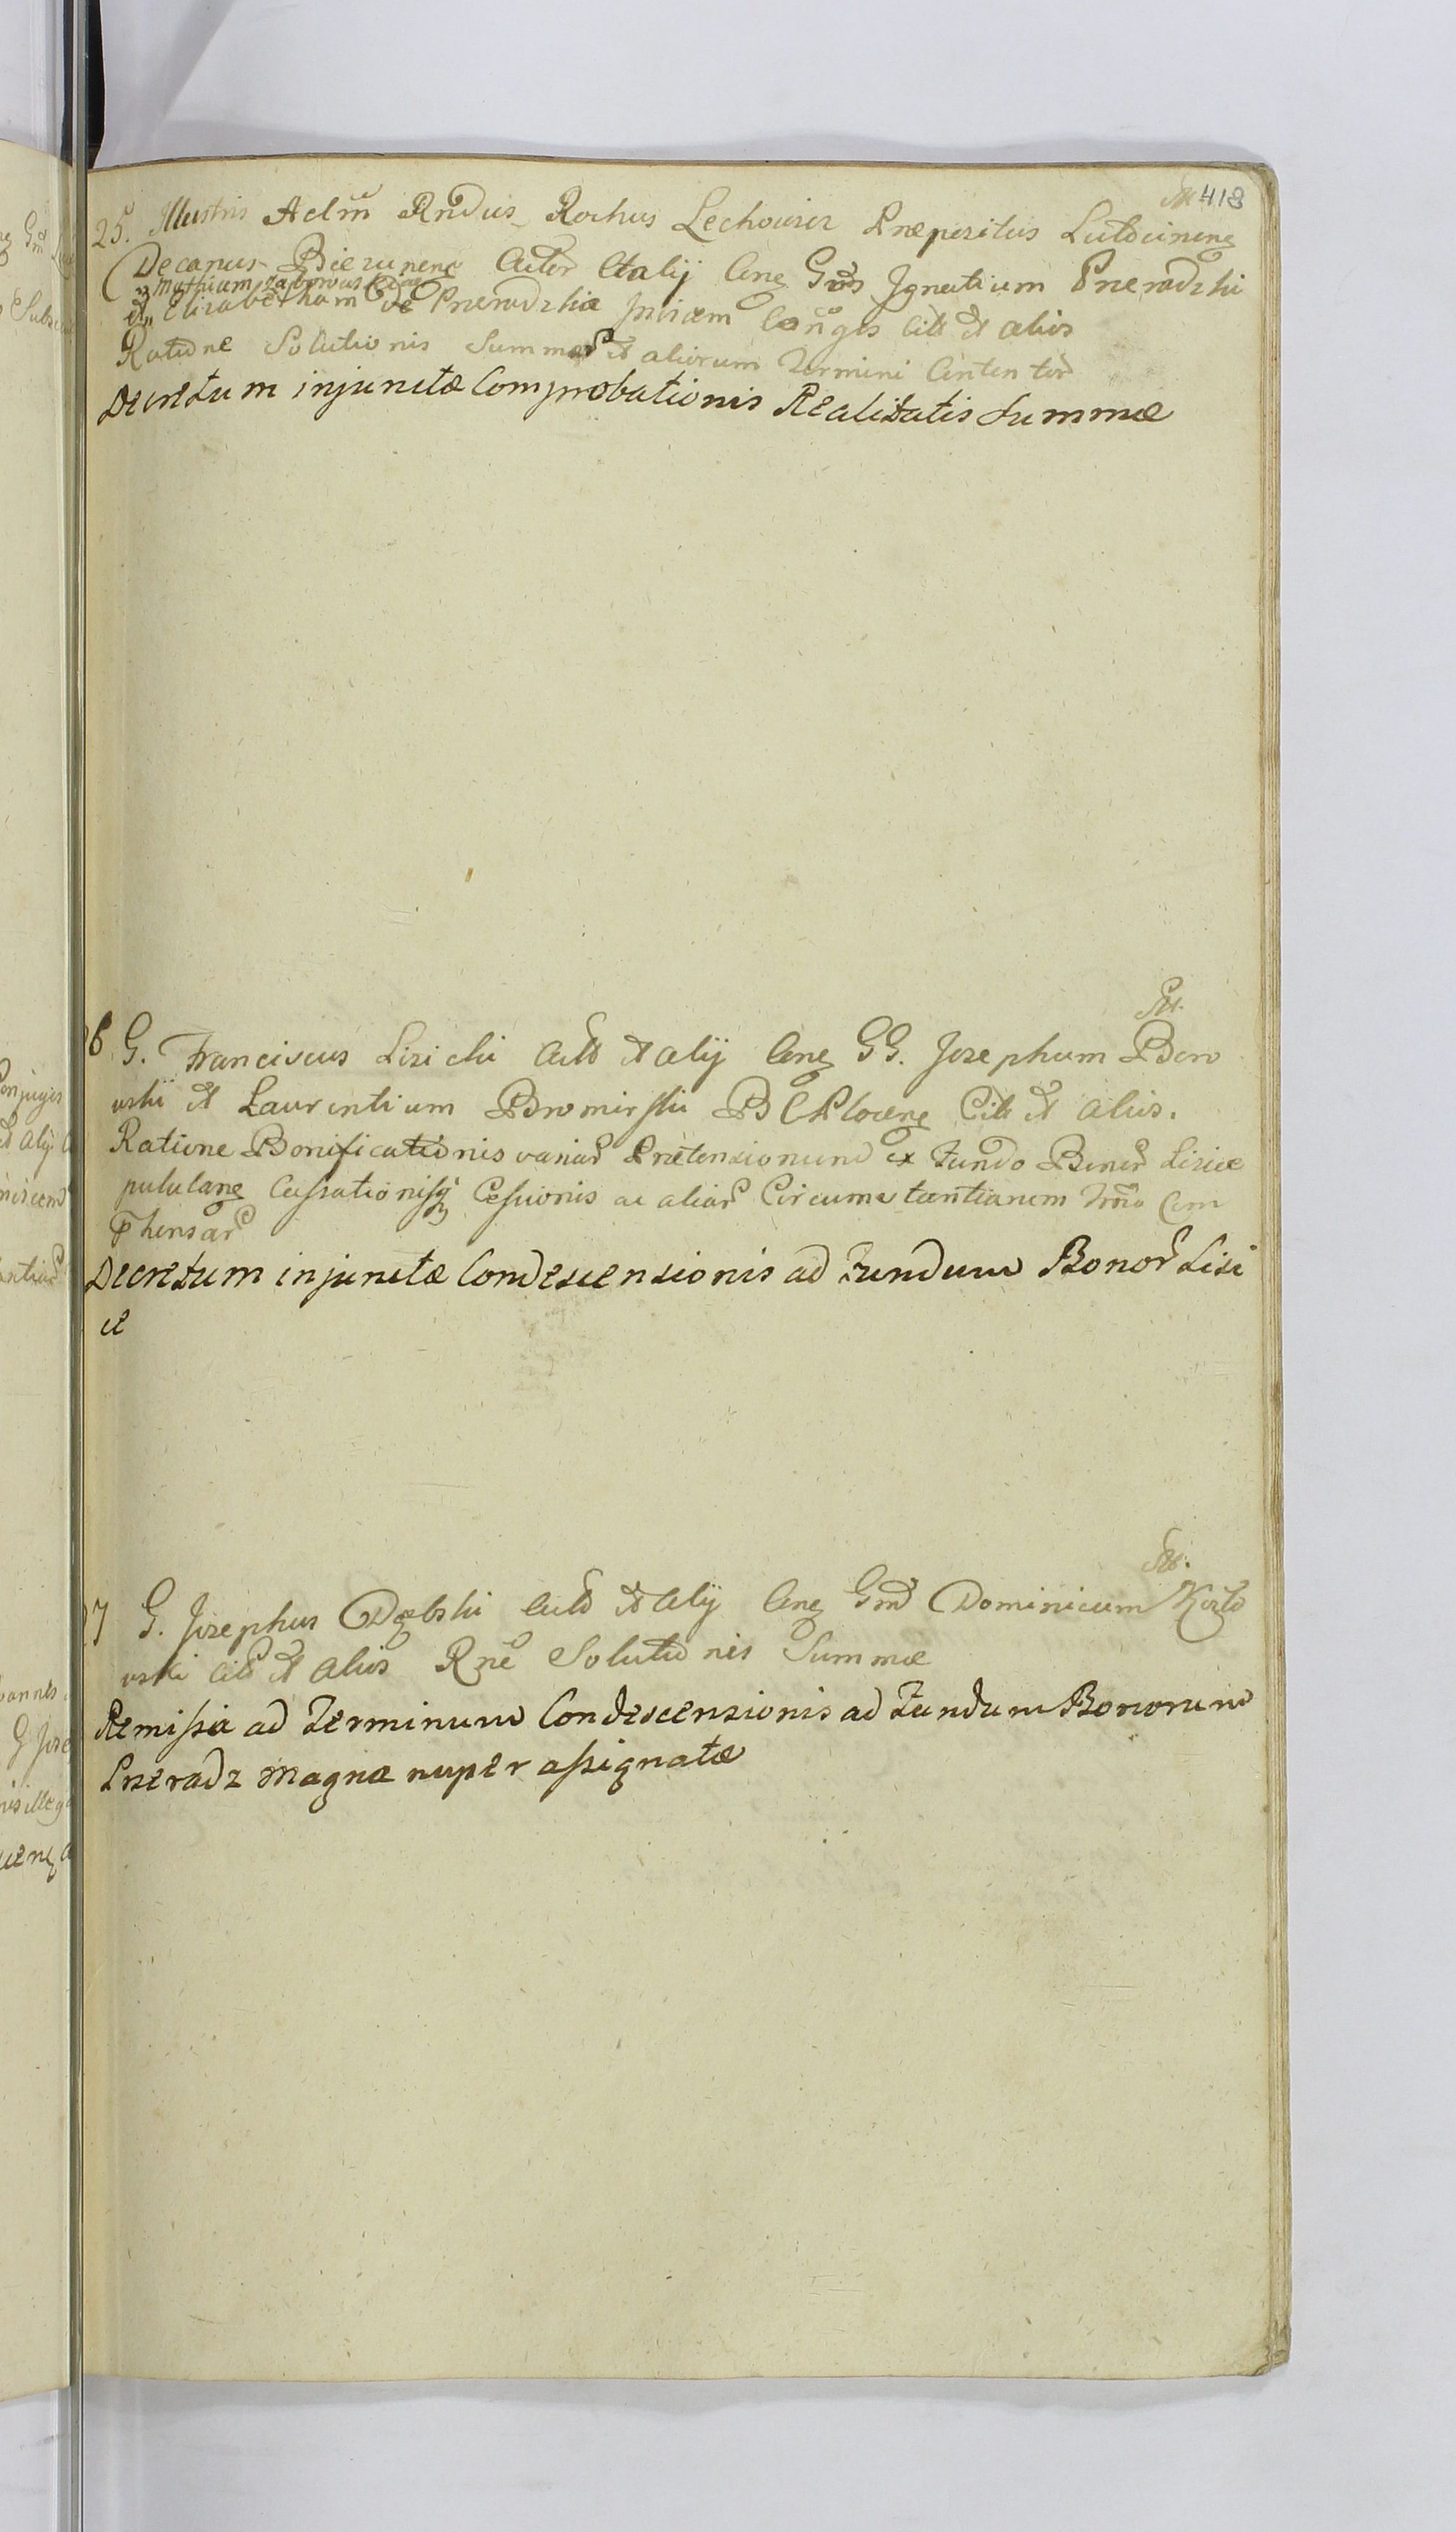 418
25. Illustris Adm Rndus Rochus Lechowicz Præpositus Lutocinens
Decanus Biezunens Actor et alij Cons Gsos Ignatium Sieradzki
et Elisabetham de Sieradzkie Conjgs Citt et alios
Ratione Solutionis Summar et aliorum Termini Contentor
Decretum injunctæ Comprobationis Realitatis Summæ
6 G. Franciscus Lisicki Actt et alij Cons GG. Josephum Boro
wski et Laurentium Bromirski B C Plocens Citt et alios.
Ratione Bonificationis variar Prætensionum ex Fundo Bonor Lisice
pululans Cassationisq Cessionis ac aliar Circumstantiarum Trmo Com
phensar
Decretum injunctæ Condescensionis ad Fundum Bonor Lisi
ce
7 G. Josephus Dębski Actt et alij Cons Gsm Dominicum Kozło
wski Citt et alios Rne Solutionis Summæ
Remissa ad Terminum Condescensionis ad Fundum Bonorum
Sieradz Magna nuper assignatæ